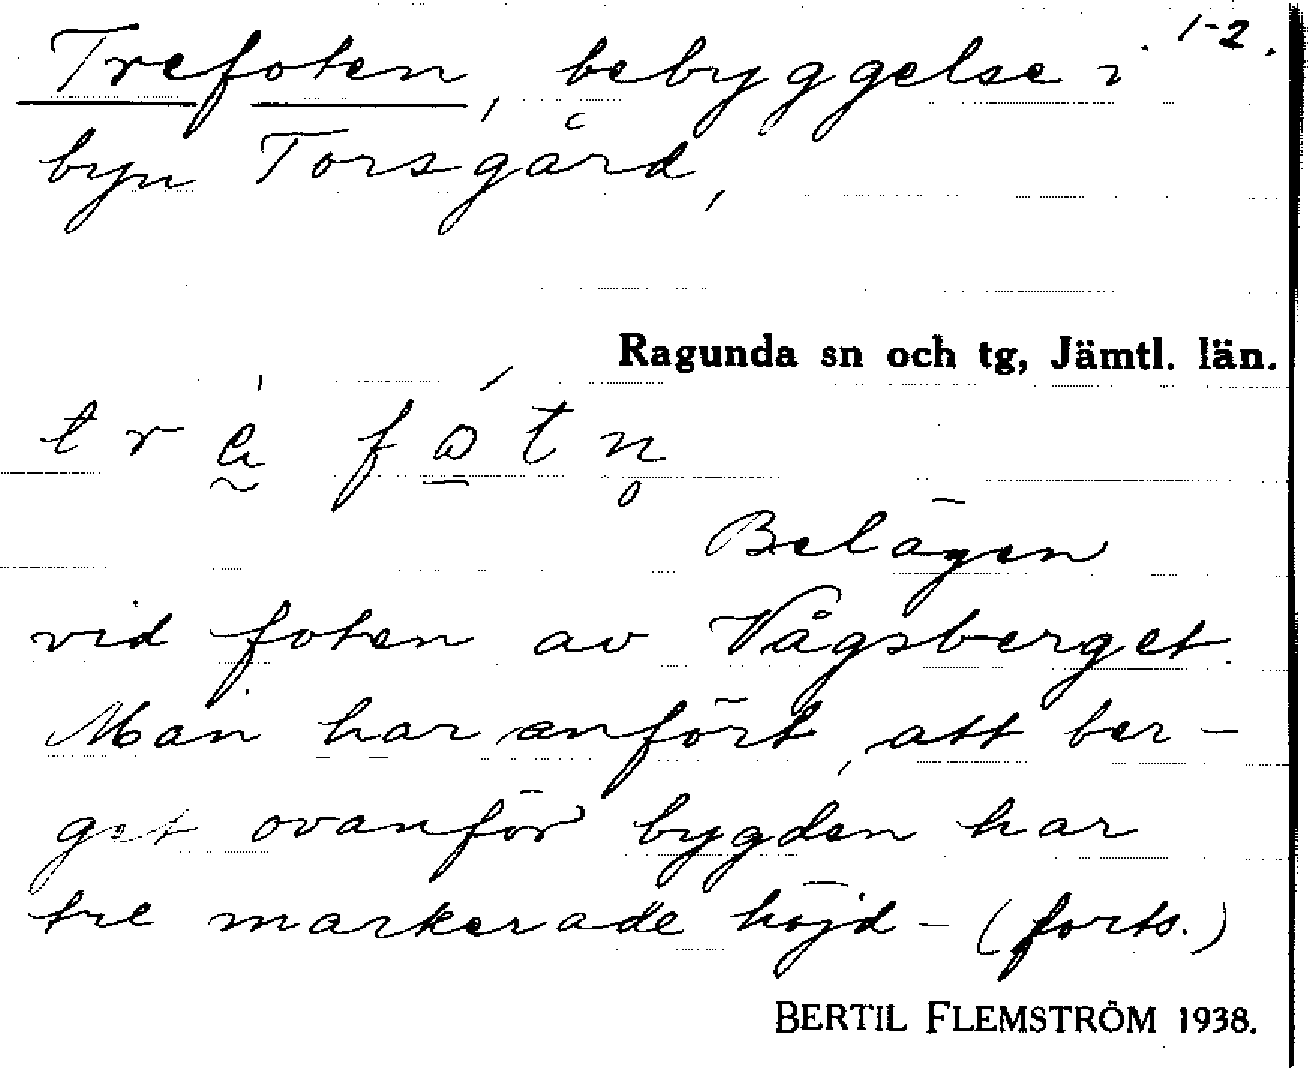 1-2.
Trefoten, bebyggelse i
byn Torsgård,
Ragunda sn och tg, Jämtl. län.
Belägen
vid foten av Vågsberget.
Man har anfört, att ber-
get ovanför bygden har
tre markerade höjd- (forts.)
BERTIL FLEMSTRÖM 1938.